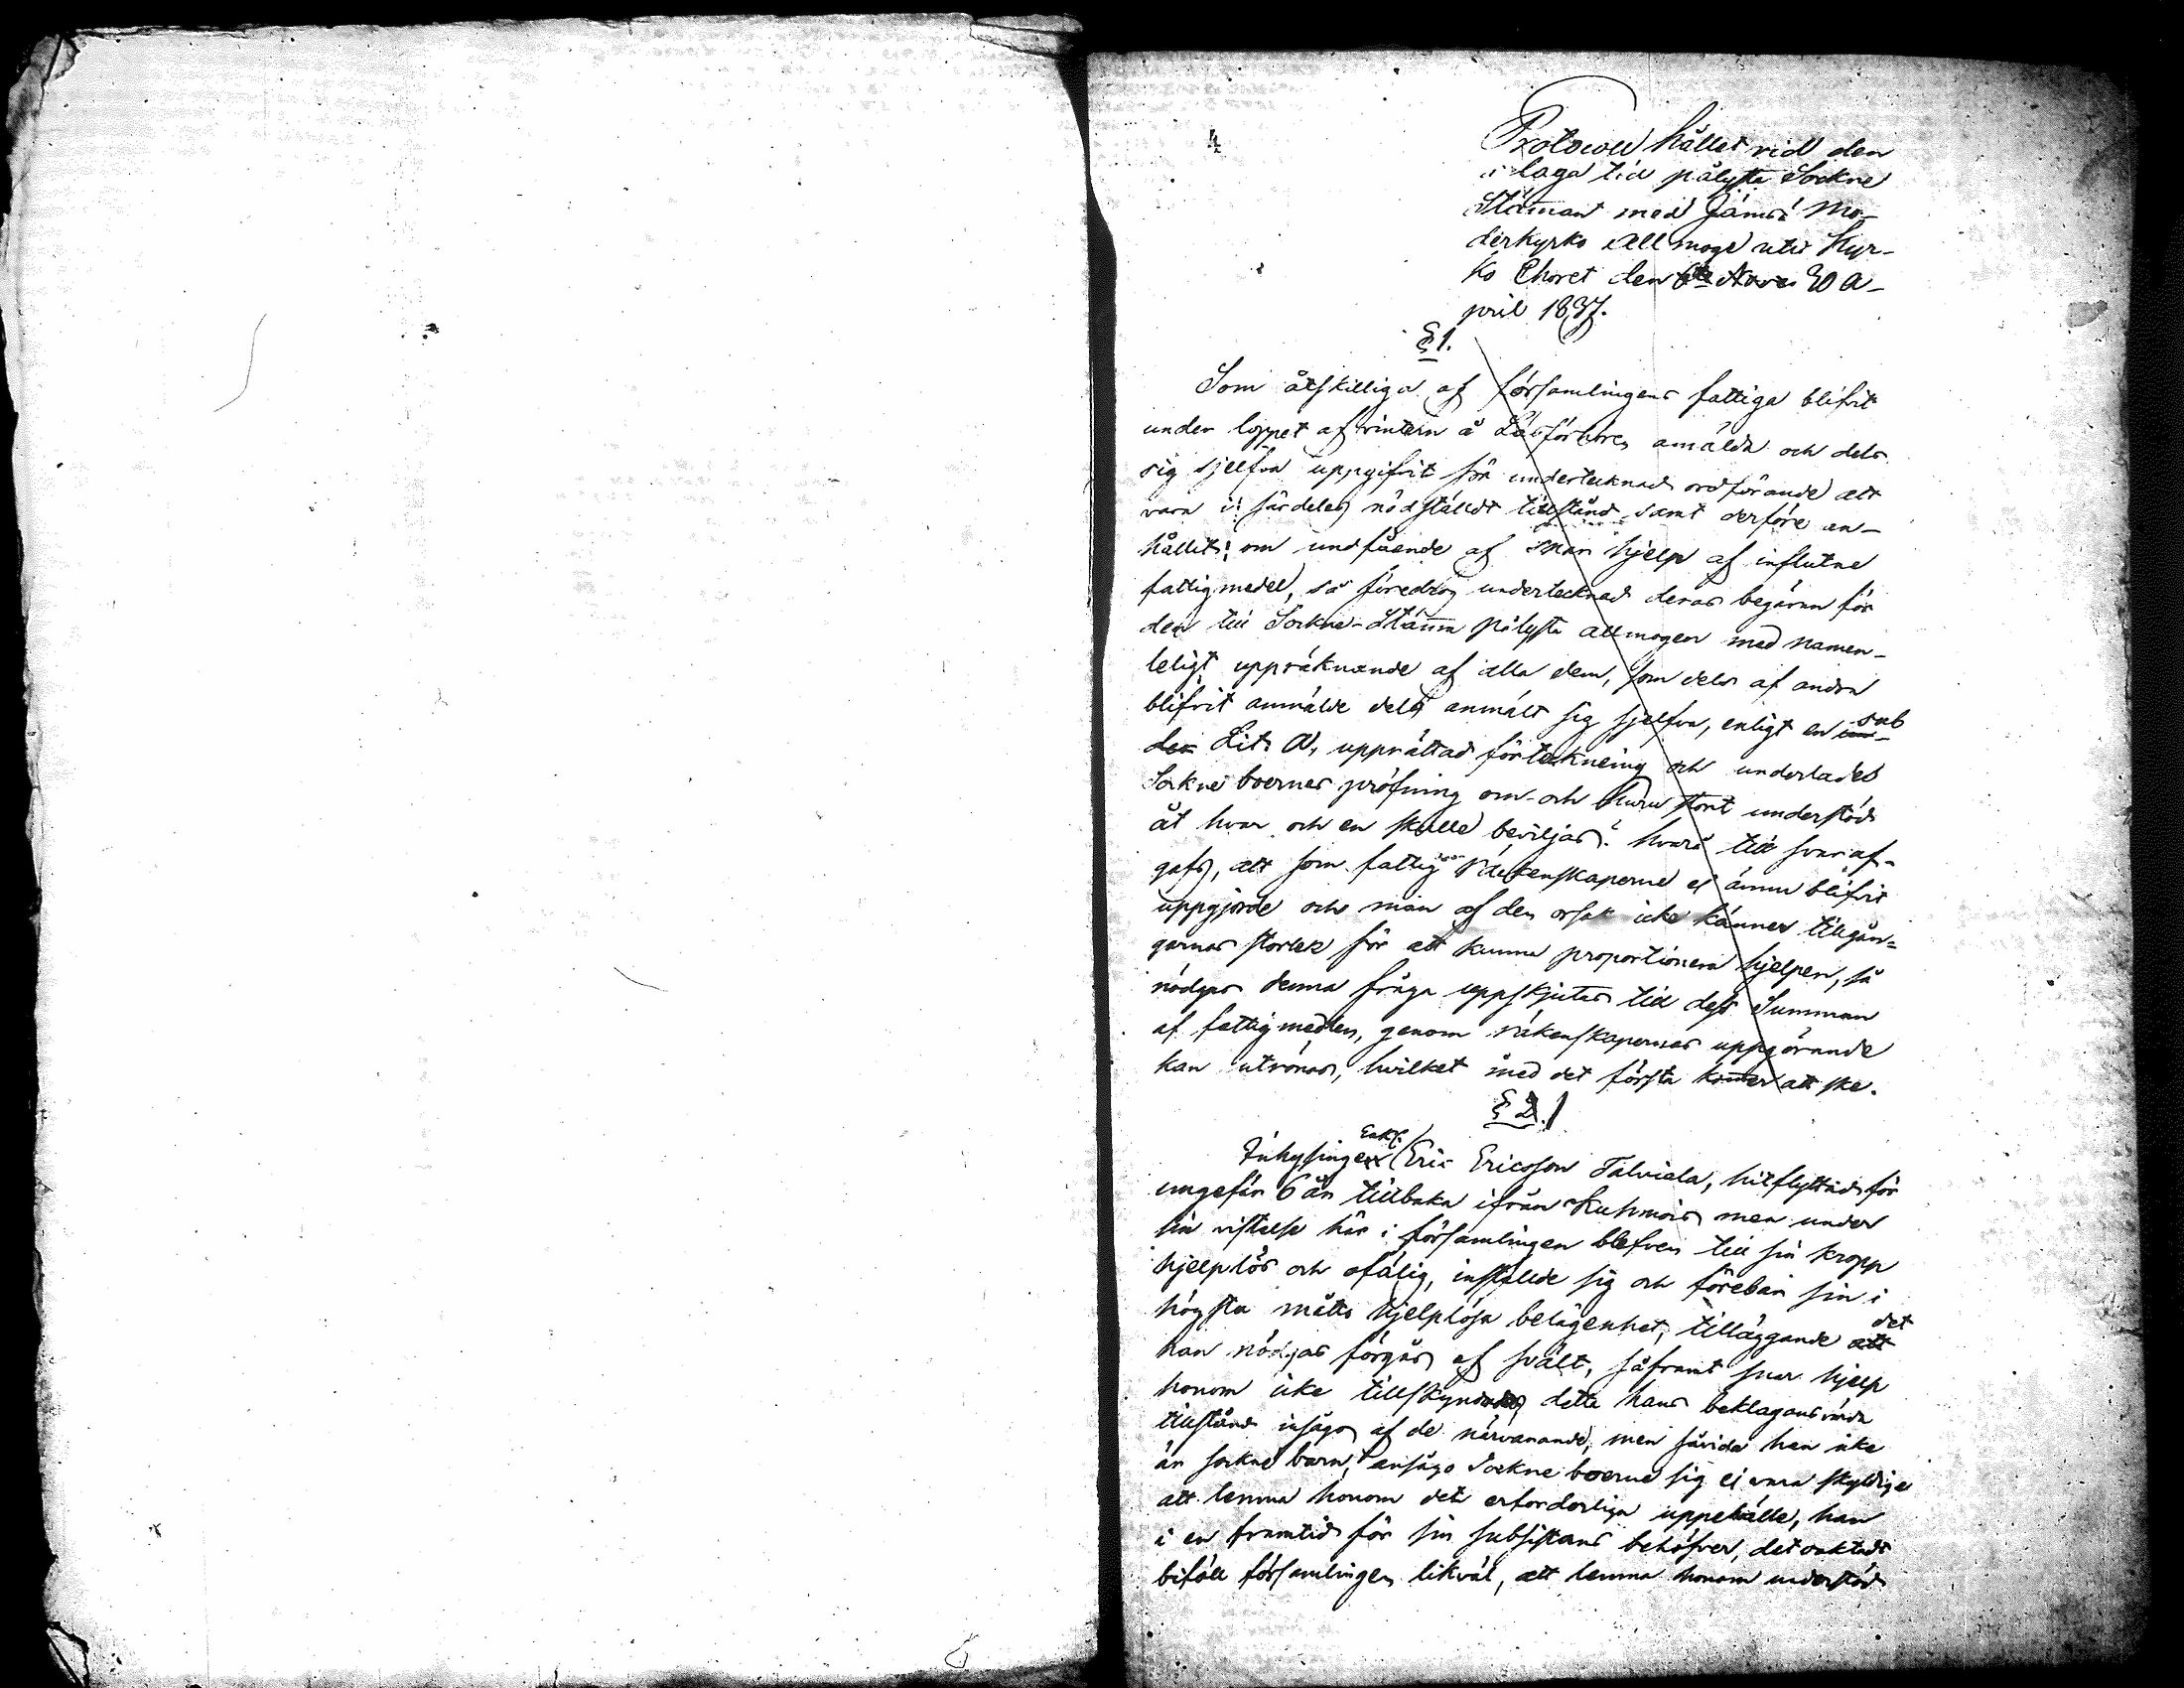 4
Protocoll hållet vid den
i laga tid pålyste Sockne
Stämant med Jämsä Mo-
derkyrko allmoge uti Kyr-
ko Choret den 30 A-
pril 1837.
§ 1.
Som åtskilliga af församlingens fattiga blifvit
under loppet af vintern å Läsförhören anmälda och dels
sig sjelfva uppgifvit för undertecknad ordförande att
vara i särdeles nödstäldt tillstånd samt derföre an-
hållit om undfående af snar hjelp af influtne
fattigmedel, så föredrog undertecknad deras begäran för
den till Sockne-Stämma pålyste allmogen med namen-
teligt uppräknande af alla dem, som dels af andra
blifvit anmälde dels anmält sig sjelfva, enligt en sub
Litt A, upprättad förteckneing och underlades
Sockne boernes pröfning om och huru stort understöd
åt hvar och en skulle beviljas? hvarå till svar af-
gafs, att som fattig räkenskaperne ej ännu blifvit
uppgjorde och man af den orsak icke känner tillgån-
garnas storlek för att kunna proportionera hjelpen, så
nödgas denna fråga uppskjutas till dess Summan
af fattigmedlen, genom räkenskapernas uppgörande
kan utrönas, hvilket med det första kommer att ske.
§ 1
Inhysinge Enkl. Eric Ericsson Talviala, hitflyttad för
ungefär 6 år tillbaka ifrån Kuhmois men under
sin vistelse här i församlingen blefven till sin kropp
hjelplös och ofälig, instälde sig och förebar sin i
högsta måtto hjelplösa belägenhet, tilläggande det
han nödgas förgås af svält, såframt snar hjelp
honom icke tillskyndas detta hans beklagansvärda
tillstånd insågo af de närvarande, men såvida han icke
är sockne barn, ansågo Sockne boerne sig ej vara skyldige
att lemna honom det erforderliga uppehälle, han
i en framtid för sin subsistans behöfver, det oaktadt
biföll församlingen likväl, att lemna honom understöd